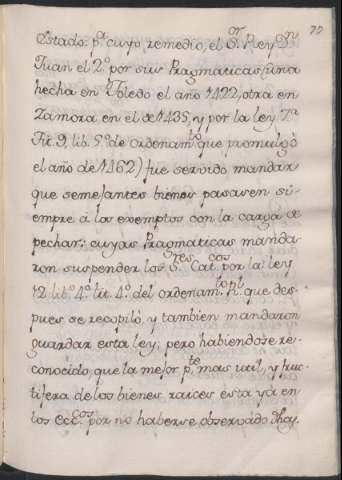 70
Estado: pª cuyo remedio, el S.ᵒʳ Rey Dⁿ
Juan el 2.º por sus Pragmaticas (una
hecha en Toledo el año 1422, otra en
Zamora en el de 1435, y por la ley 7ª
Tit. 9. lib. 5.º de ordenam.ᵗᵒ que promulgó
el año de 1462) fue servido mandar
que semejantes bienes pasasen si-
empre á los exemptos con la carga de
pechar: cuyas Pragmaticas manda-
ron suspender los S.ʳᵉˢ Cat.ᶜᵒˢ por la ley
12 lib.º 4.º tit. 4.º del ordenam.ᵗᵒ R.ˡ que des-
pues se recopiló, y tambien mandaron
guardar esta ley; pero habiendose re-
conocido, que la mejor p.ᵗᵉ mas util, y fruc-
tifera de los bienes raices está yá en
los Ecc.ᶜᵒˢ por no haberse observado Dhas.